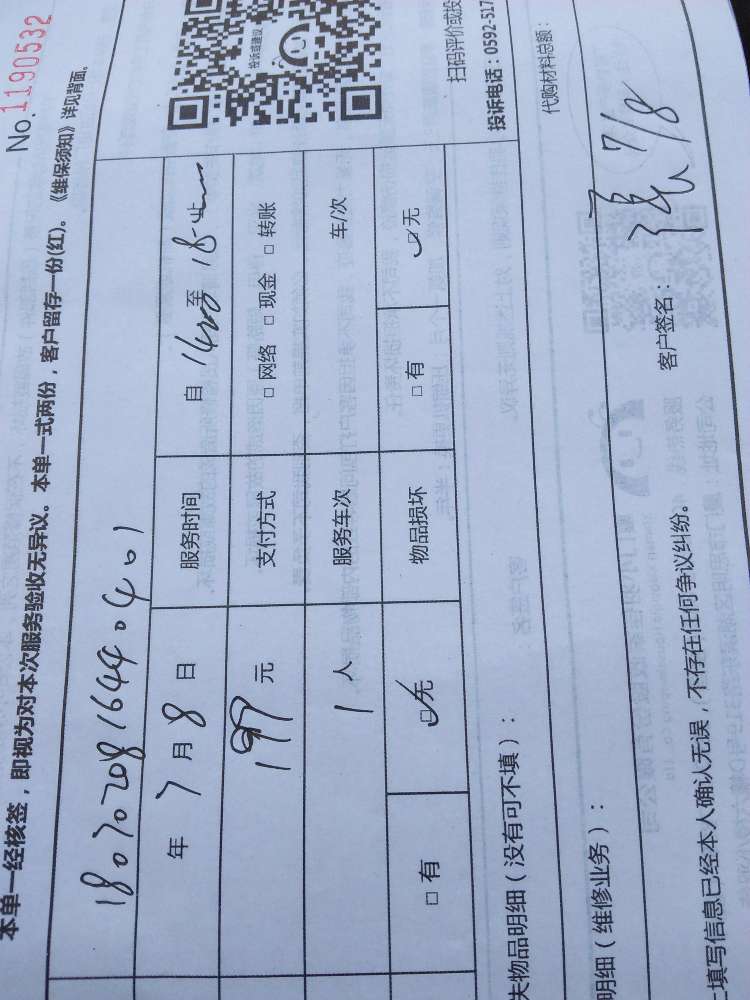 No.1190532
本单一经核签，即视为对本次服务验收无异议。本单一式两份，客户留存一份(红)。《维保须知》详见背面。
投诉或建议
1807020816440401
年 7 月 8 日 服务时间 自 1400 至 18
197 元 支付方式 □ 网络 □ 现金 □ 转账
1 人 服务车次 车/次
□ 有 □ 无 物品损坏 □ 有 □ 无
扫码评价或投
投诉电话：0592-517
失物品明细（没有可不填）：
代购材料总额：
明细（维修业务）：
上填写信息已经本人确认无误，不存在任何争议纠纷。 客户签名： 7/8